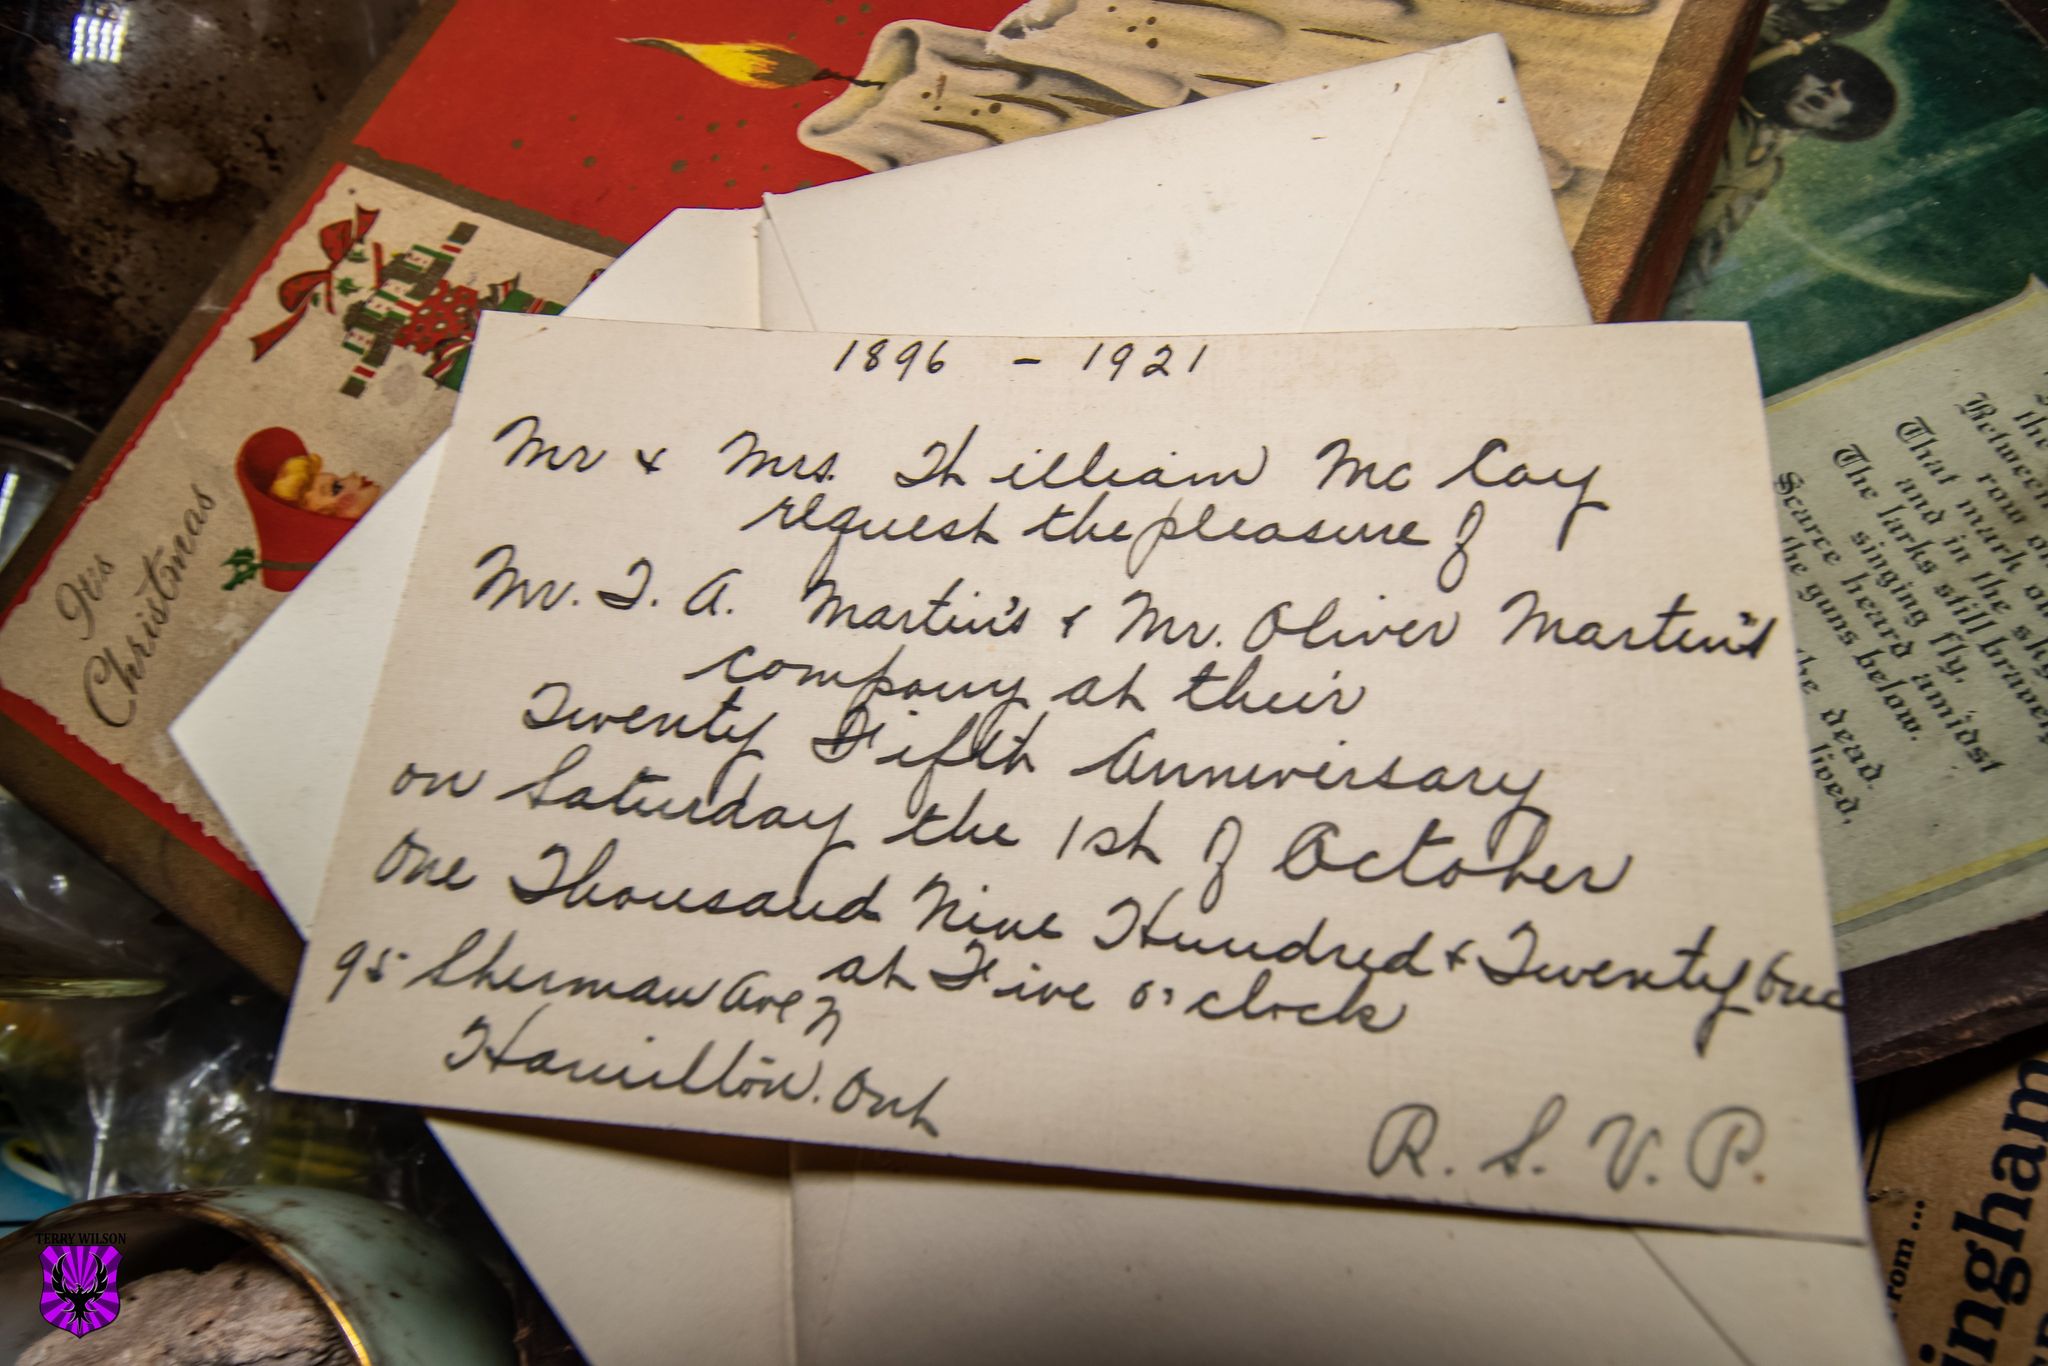 1896 - 1921
Mr & Mrs. William McCoy
request the pleasure of
Mr. T. A. Martin's & Mr. Oliver Martin's
company at their
Twenty Fifth Anniversary
on Saturday the 1st of October
One Thousand Nine Hundred & Twenty One
at Five o'clock
95 Sherman Ave N
Hamilton. Ont
R. S. V. P.
It's
Christmas
the
Between
row on
That mark our
and in the sky
The larks still bravely
singing fly,
Scarce heard amidst
the guns below.
the dead.
lived,
from ...
ingham
TERRY WILSON